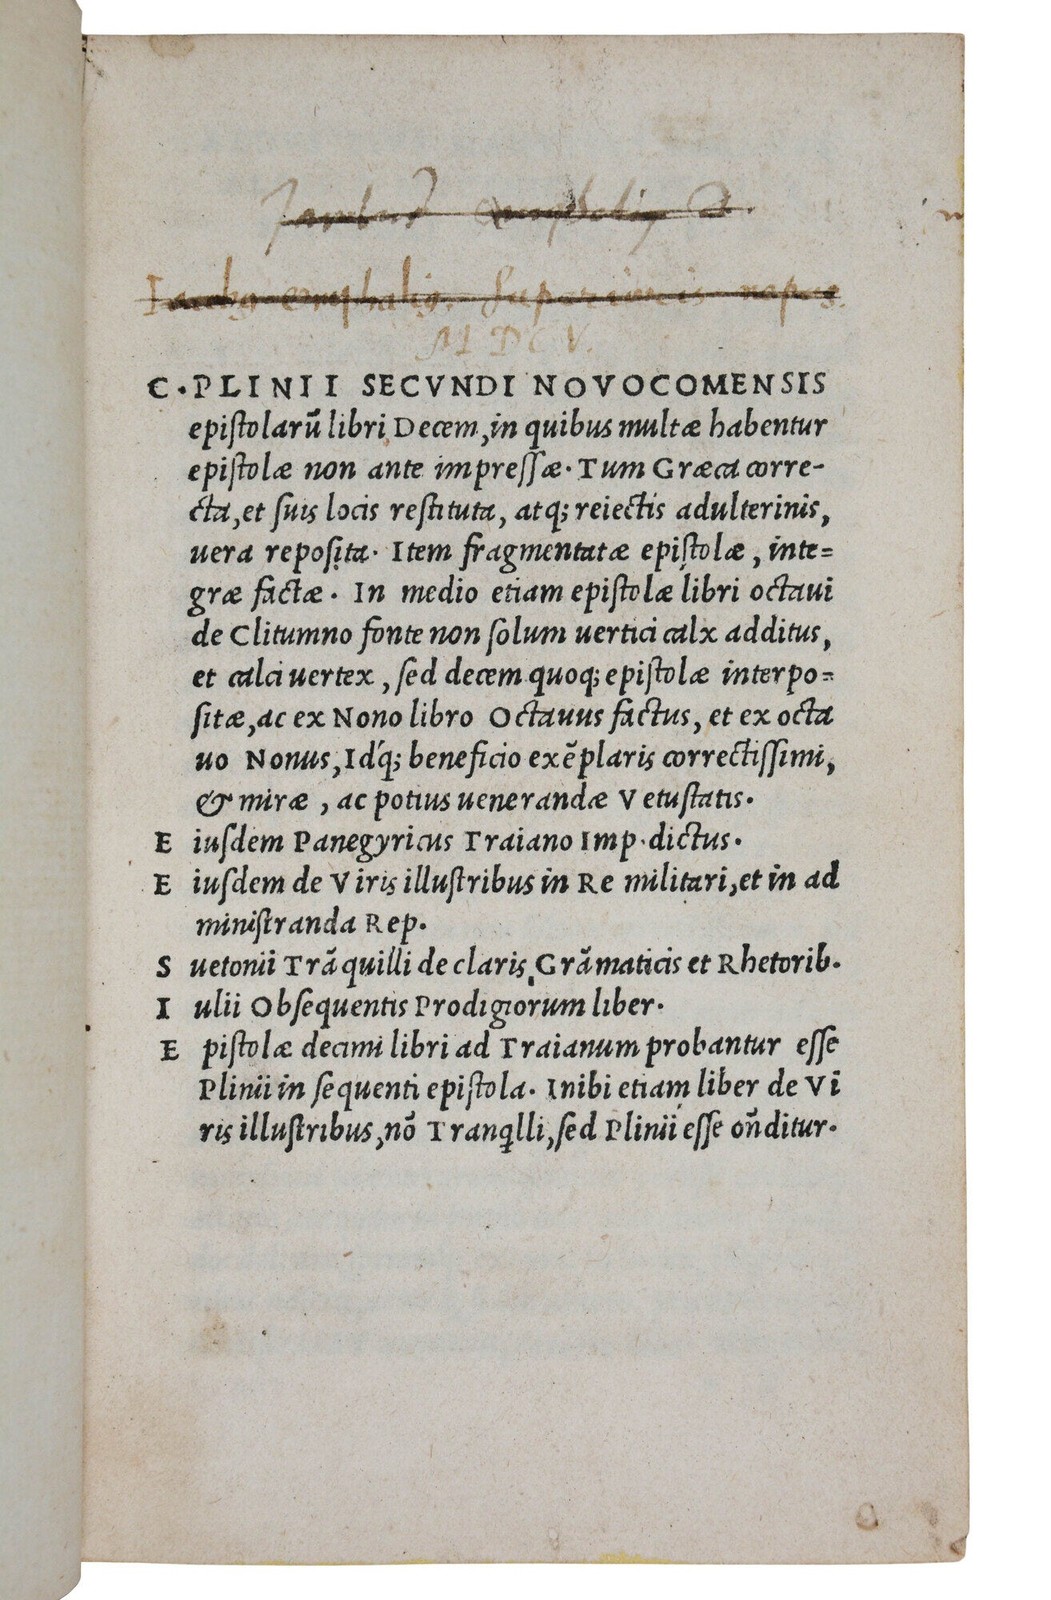 M D C V.
C. PLINII SECVNDI NOVOCOMENSIS
epiſtolarũ libri Decem, in quibus multæ habentur
epistolæ non ante impreſſæ. Tum Græca corre-
cta, et ſuis locis reſtituta, atq; reiectis adulterinis,
uera repoſita. Item fragmentatæ epiſtolæ, inte=
græ factæ. In medio etiam epiſtolæ libri octaui
de Clitumno fonte non ſolum uertici calx additus,
et calci uertex, ſed decem quoq; epiſtolæ interpo=
ſitæ, ac ex Nono libro Octauus factus, et ex octa
uo Nonus, Idq́; beneficio exẽplaris correctiſſimi,
& miræ, ac potius uenerandæ Vetuſtatis.
E iuſdem Panegyricus Traiano Imp. dictus.
E iuſdem de Viris illuſtribus in Re militari, et in ad
miniſtranda Rep.
S uetonii Trãquilli de claris Grãmaticis et Rhetorib.
I ulii Obſequentis Prodigiorum liber.
E piſtolæ decimi libri ad Traianum probantur eſſe
Plinii in ſequenti epiſtola. Inibi etiam liber de Vi
ris illuſtribus, nõ Tranq̃lli, ſed Plinii eſſe oñditur.